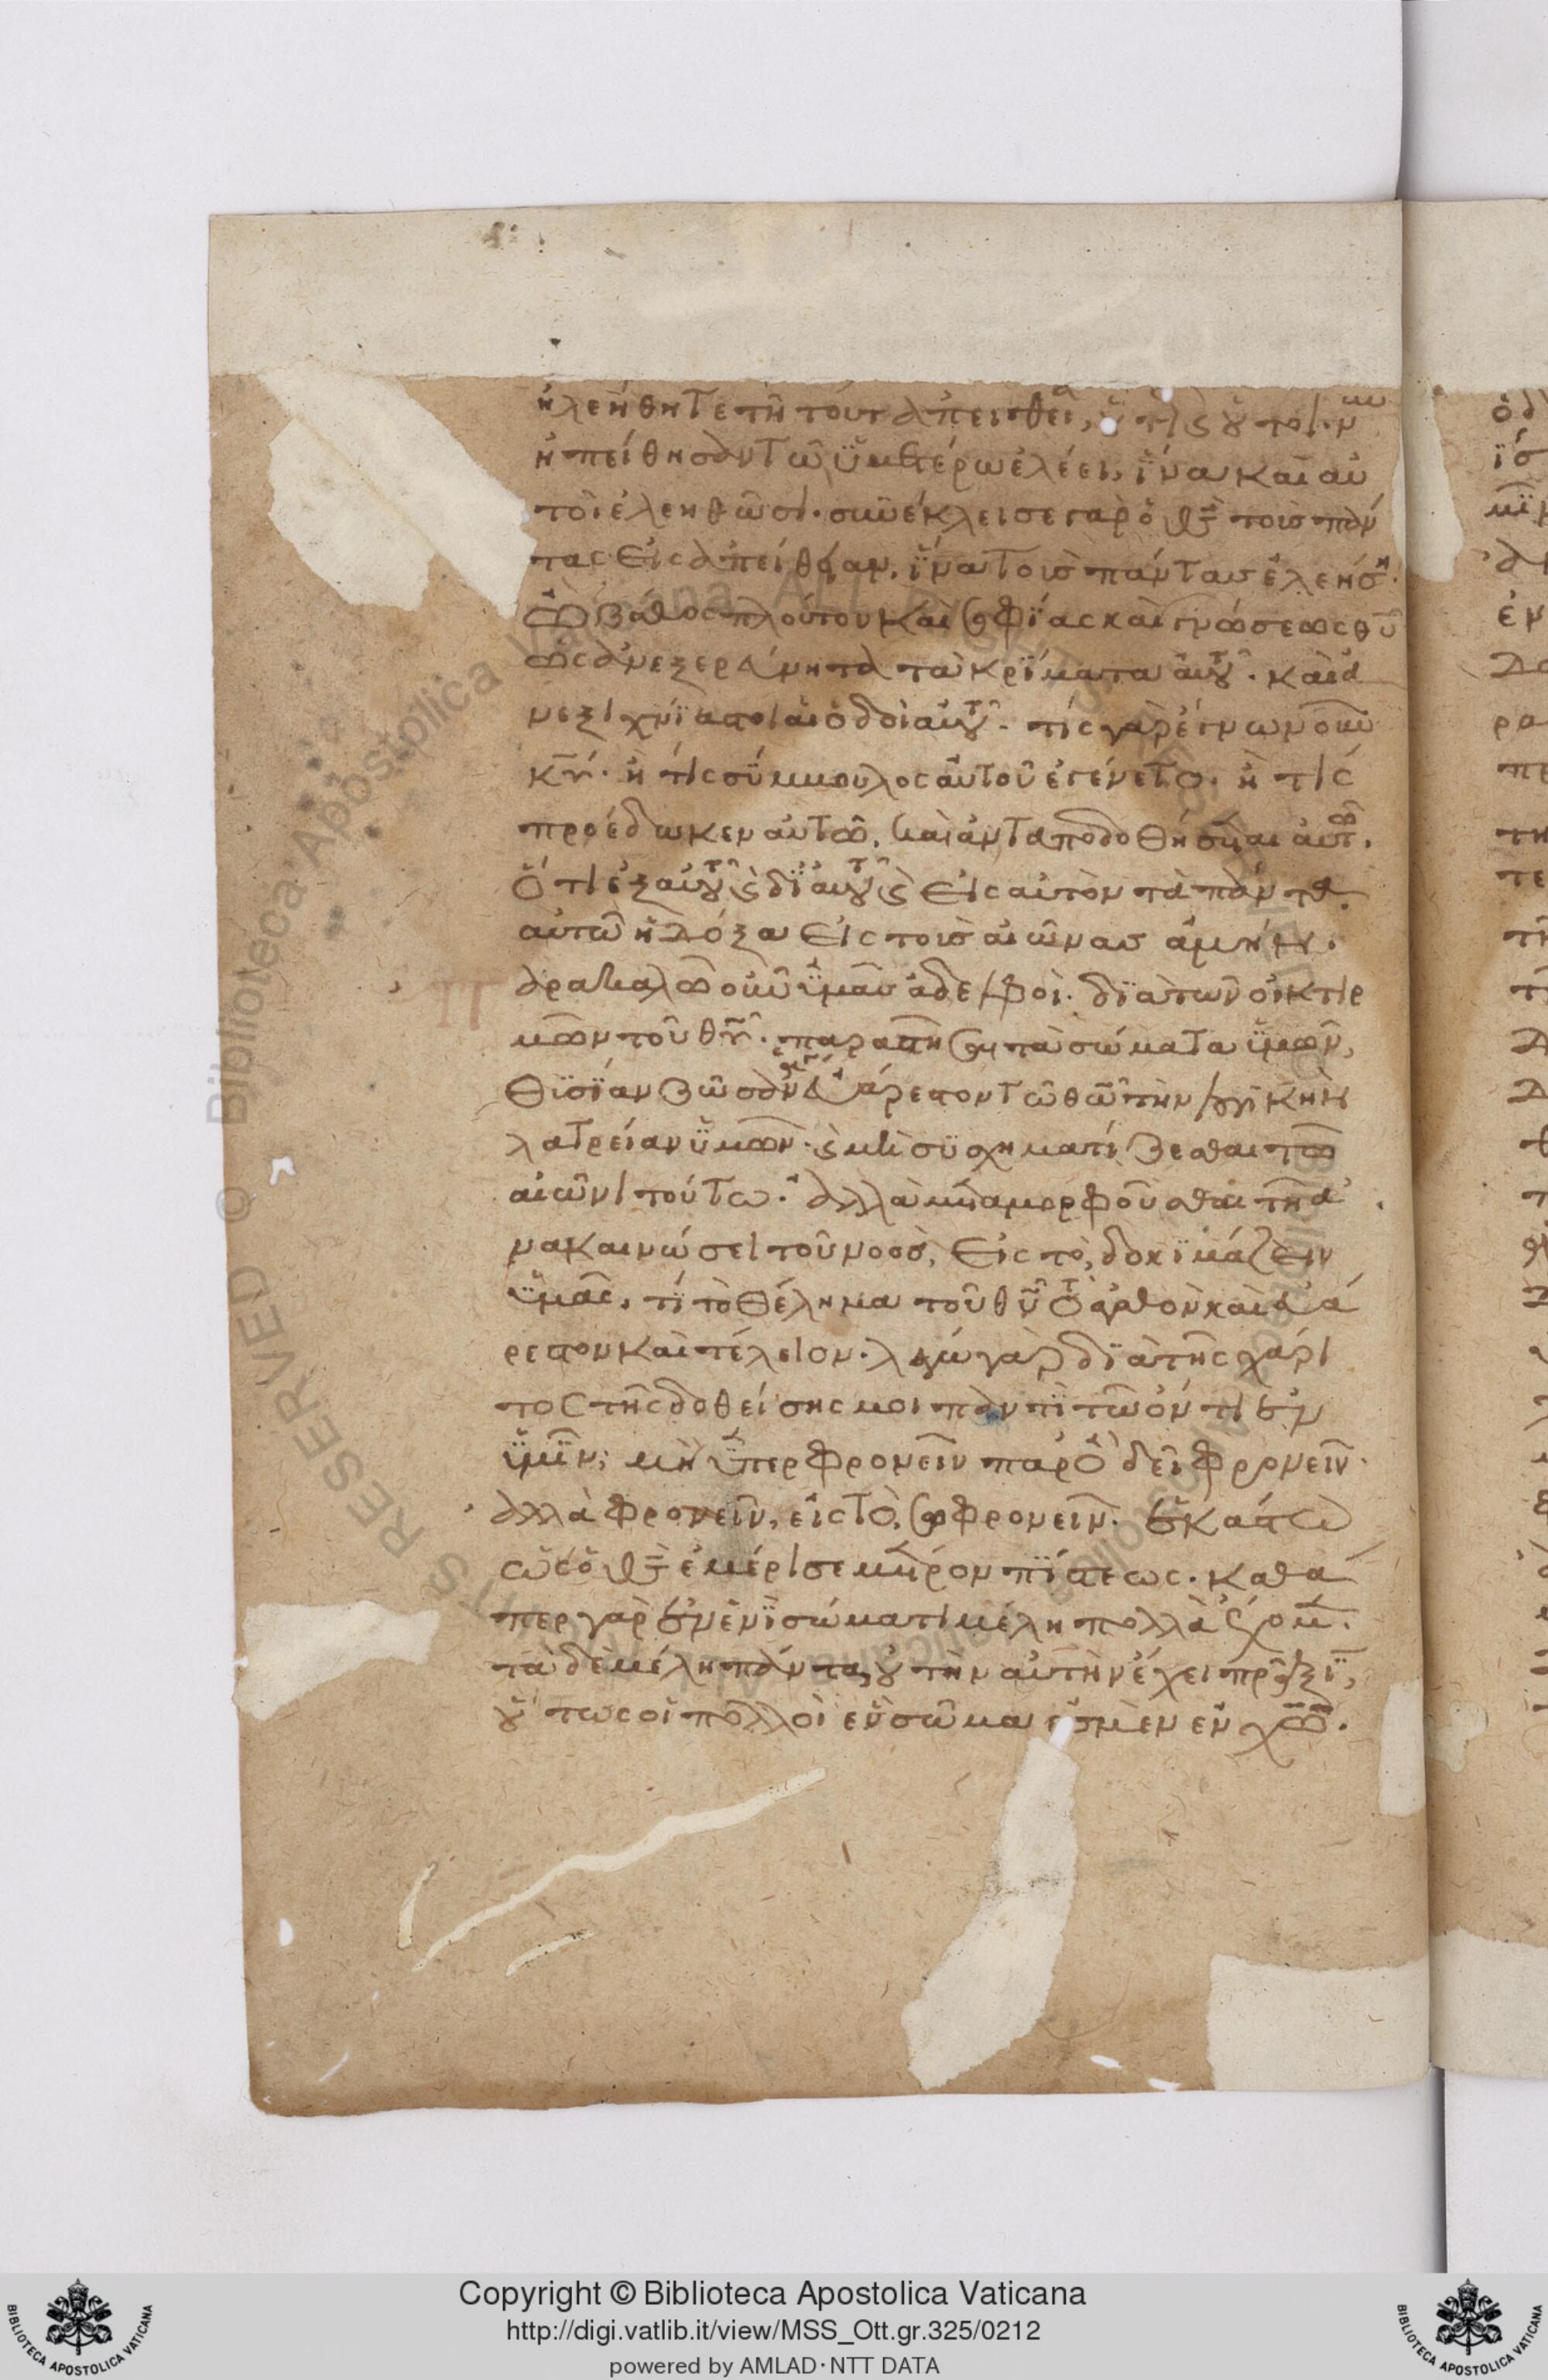 ἠλεήθητε τῆ τούτ ἀπειθεία, οὕτως οὗτοι νῦν
ἠπείθησαν τῶ ὑμετέρω ἐλέει, ἵνα καὶ αὐ
τοὶ ἐλεηθῶσι. συνέκλεισε γὰρ ὁ θς τοὺσ πάν
τας εἰς ἀπείθειαν, ἵνα τοὺσ πάντασ ἐλεήση.
ὦ βάθος πλούτου καὶ σοφίας καὶ γνώσεως θυ
ὡς ἀνεξερεύνητα τὰ κρίματα αὐτοῦ. καὶ ἀ
νεξιχνίαστοι αἱ ὁδοὶ αὐτοῦ. τίς γὰρ ἔγνω νοῦν
κυ. ἢ τίς σύμμουλος αὐτοῦ ἐγένετο. ἢ τίς
προέδωκεν αὐτῶ, καὶ ἀνταποδοθήσεται αὐτῶ.
ὅτι ἐξ αὐτοῦ ϗ δϊ αὐτοῦ ϗ εἰς αὐτὸν τὰ πάντα.
αὐτῶ ἡ δόξα εἰς τοὺσ αἰῶνασ ἀμήν.
Παρακαλῶ οὖν ὑμᾶσ ἀδελφοὶ. δϊὰ τῶν οἰκτιρ
μῶν τοῦ θυ. παραστῆσαι τὰ σώματα ὑμῶν,
θϊσϊαν ζῶσαν ἁγίαν εὐάρεστον τῶ θῶ τὴν λογϊκὴν
λατρείαν ὑμῶν. ϗ μὴ συσχηματίζεσθαι τῶ
αἰῶνι τούτω. ἀλλὰ μεταμορφοῦσθαι τῆ ἀ
νακαινώσει τοῦ νοὸσ, εἰς τὸ, δοκϊμάζειν
ὑμᾶς, τί τὸ θέλημα τοῦ θυ τὸ ἀγαθὸν καὶ εὐά
ρεστον καὶ τέλειον. λέγω γὰρ δϊὰ τῆς χάρι
τος τῆς δοθείσης μοι παντὶ τῶ ὄντι ἐν
ὑμῖν, μὴ ὑπερφρονεῖν παρ ὃ δεῖ φρονεῖν.
ἀλλὰ φρονεῖν, εἰς τὸ, σωφρονεῖν. ἑκάστω
ὡς ὁ θς ἐμέρισε μέτρον πίστεως. καθά
περ γὰρ ἐν ἑνὶ σώματι μέλη πολλὰ ἔχομεν.
τὰ δὲ μέλη πάντα, οὐ τὴν αὐτὴν ἔχει πρᾶξϊν,
οὕτως οἱ πολλοὶ ἓν σῶμα ἐσμὲν ἐν χω.
Copyright © Biblioteca Apostolica Vaticana
http://digi.vatlib.it/view/MSS_Ott.gr.325/0212
powered by AMLAD·NTT DATA